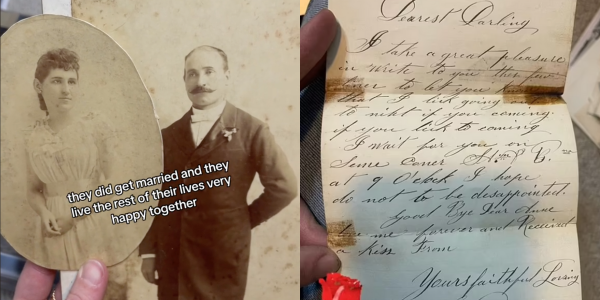 they did get married and they
live the rest of their lives very
happy together
Dearest Darling
I take a great pleasure
in write to you ther few
liner to let you
that I lick going out
to nikt if you coming.
if you lick to coming
I wait for you on
Same Coner
at 9 O'clock I hope
do not to be desappointed.
Good Bye Dear
me forever and Received
a kiss From
Yours faithful Loving